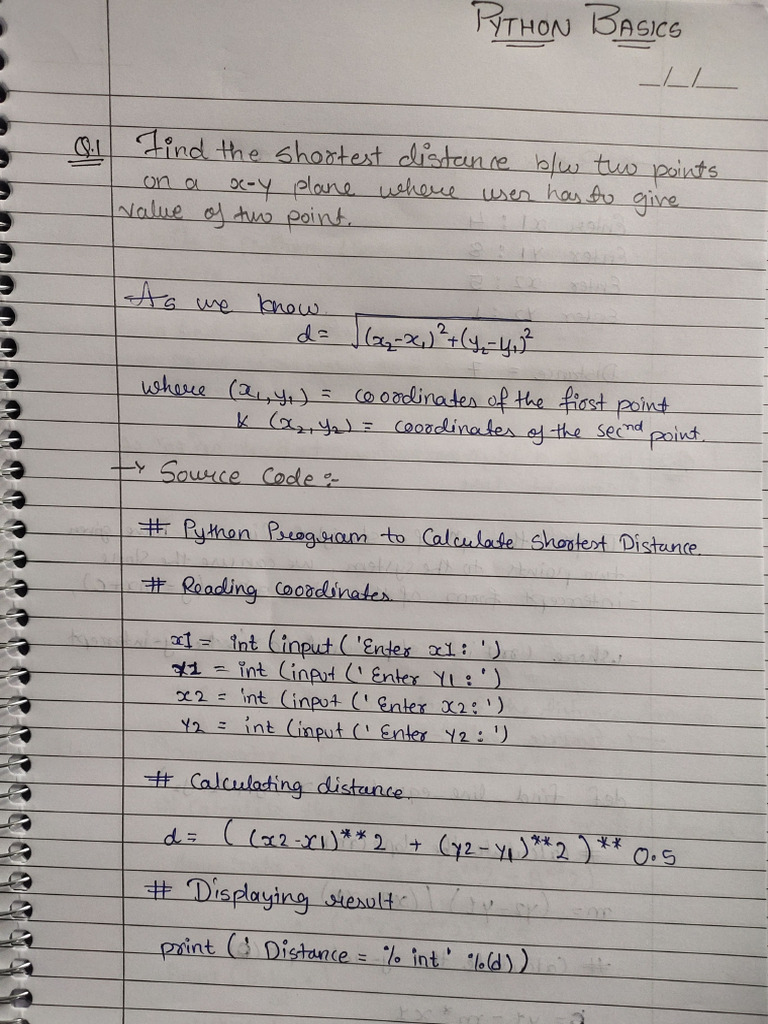 PYTHON BASICS
_/_/__
Q.1 Find the shortest distance b/w two points
on a x-y plane where user has to give
value of two point.
As we know
d = √(x₂-x₁)²+(y₂-y₁)²
where (x₁,y₁) = coordinates of the first point
& (x₂,y₂) = coordinates of the secnd point.
→ Source Code :-
# Python Program to Calculate Shortest Distance.
# Reading coordinates
x1 = int (input ('Enter x1: ')
y1 = int (input (' Enter Y1 : ')
x2 = int (input (' Enter x2: ')
Y2 = int (input (' Enter Y2 : ')
# Calculating distance.
d = ( (x2-x1)**2 + (y2-y1)**2 )** 0.5
# Displaying result
print (' Distance = % int' %(d))